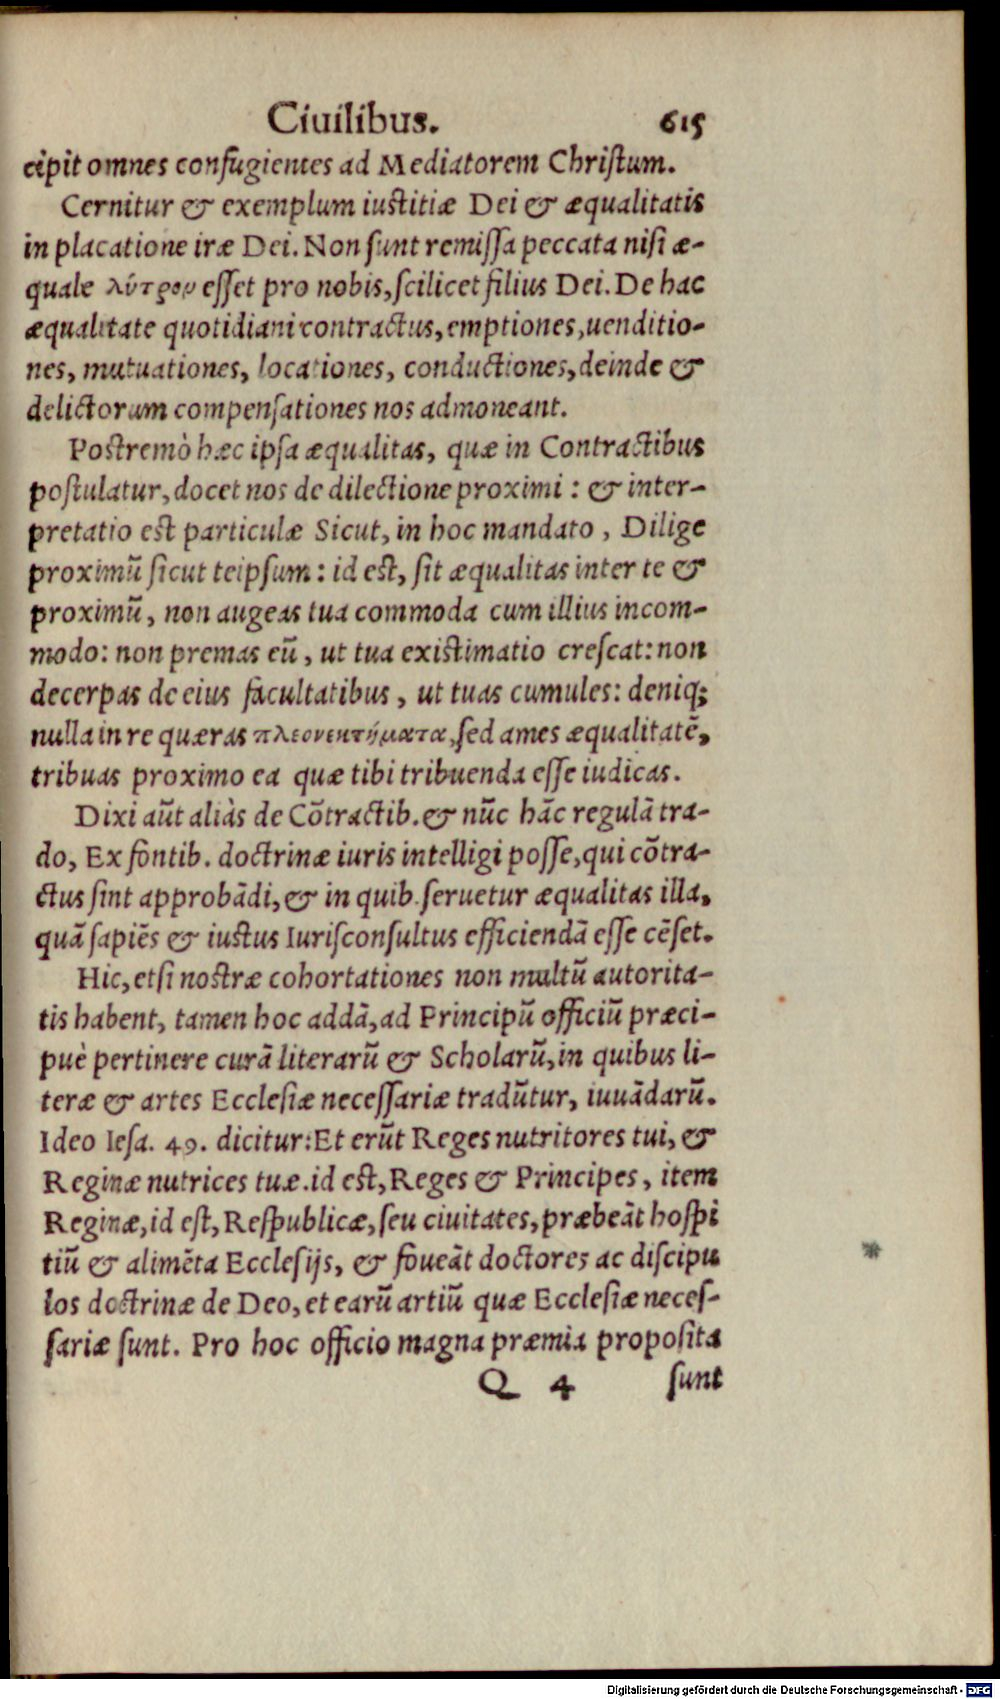 Ciuilibus. 615
cipit omnes confugientes ad Mediatorem Christum.
Cernitur & exemplum iustitiæ Dei & æqualitatis
in placatione iræ Dei. Non sunt remissa peccata nisi æ-
quale λύτρον esset pro nobis, scilicet filius Dei. De hac
æqualitate quotidiani contractus, emptiones, uenditio-
nes, mutuationes, locationes, conductiones, deinde &
delictorum compensationes nos admoneant.
Postremò hæc ipsa æqualitas, quæ in Contractibus
postulatur, docet nos de dilectione proximi : & inter-
pretatio est particulæ Sicut, in hoc mandato , Dilige
proximū sicut teipsum : id est, sit æqualitas inter te &
proximū, non augeas tua commoda cum illius incom-
modo: non premas eū, ut tua existimatio crescat: non
decerpas de eius facultatibus, ut tuas cumules: deniq;
nulla in re quæras πλεονεκτήματα, sed ames æqualitatē,
tribuas proximo ea quæ tibi tribuenda esse iudicas.
Dixi aūt aliàs de Cōtractib. & nūc hāc regulā tra-
do, Ex fontib. doctrinæ iuris intelligi posse, qui cōtra-
ctus sint approbādi, & in quib. seruetur æqualitas illa,
quā sapiēs & iustus Iurisconsultus efficiendā esse cēset.
Hic, etsi nostræ cohortationes non multū autorita-
tis habent, tamen hoc addā, ad Principū officiū præci-
puè pertinere curā literarū & Scholarū, in quibus li-
teræ & artes Ecclesiæ necessariæ tradūtur, iuuādarū.
Ideo Iesa. 49. dicitur: Et erūt Reges nutritores tui, &
Reginæ nutrices tuæ. id est, Reges & Principes, item
Reginæ, id est, Respublicæ, seu ciuitates, præbeāt hospi
tiū & alimēta Ecclesijs, & foueāt doctores ac discipu
los doctrinæ de Deo, et earū artiū quæ Ecclesiæ neces-
sariæ sunt. Pro hoc officio magna præmia proposita
Q 4 sunt
Digitalisierung gefördert durch die Deutsche Forschungsgemeinschaft - DFG